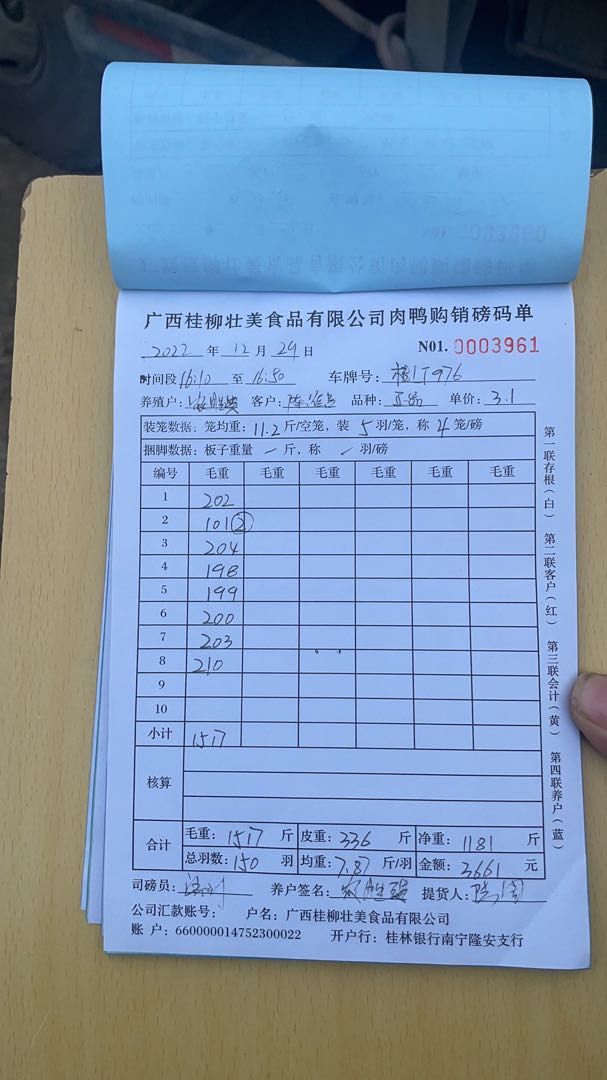 广西桂柳壮美食品有限公司肉鸭购销磅码单
2022 年 12 月 29 日 N01. 0003961
时间段 16:10 至 16:50 车牌号: 桂LT976
养殖户: 客户: 品种: 正品 单价: 3.1
装笼数据: 笼均重: 11.2 斤/空笼, 装 5 羽/笼, 称 4 笼/磅
捆脚数据: 板子重量 斤, 称 羽/磅
编号 毛重 毛重 毛重 毛重 毛重 毛重
1 202
2 101 ②
3 204
4 198
5 199
6 200
7 203
8 210
9
10
小计 1517
核算
合计 毛重: 1517 斤 皮重: 336 斤 净重: 1181 斤
总羽数: 150 羽 均重: 7.87 斤/羽 金额: 3661 元
司磅员: 养户签名: 提货人:
公司汇款账号: 户名: 广西桂柳壮美食品有限公司
账 户: 660000014752300022 开户行: 桂林银行南宁隆安支行
第一联存根(白) 第二联客户(红) 第三联会计(黄) 第四联养户(蓝)